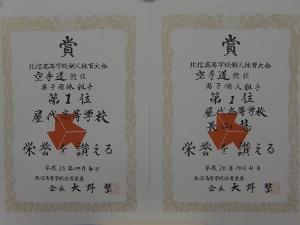 賞
北信高等学校新人体育大会
空手道競技
男子団体組手
第1位
屋代高等学校
栄誉を讃える
平成26年10月4日
北信高等学校体育連盟
会長 大野 整
賞
北信高等学校新人体育大会
空手道競技
男子個人組手
第1位
屋代高等学校
栄誉を讃える
平成26年10月4日
北信高等学校体育連盟
会長 大野 整